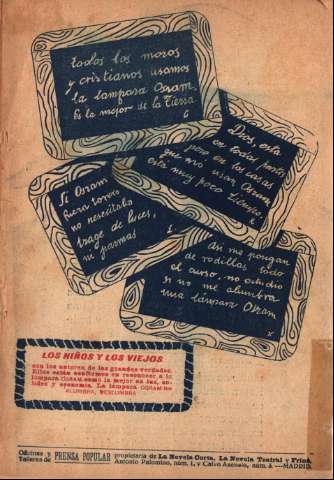 todos los moros
y cristianos usamos
la lámpara Osram.
Es la mejor de la Tierra
Dios, esta
en todas partes
pero en las casas
que no usan Osram
está muy poco tiempo.
Si Osram
fuera torero
no nesesitaba
trage de luces,
ni parmas
Asi me pongan
de rodillas todo
el curso, no estudio
si no me alumbra
una lámpara Osram
LOS NIÑOS Y LOS VIEJOS
son los autores de las grandes verdades.
Ellos están conformes en reconocer a la
lámpara OSRAM como la mejor en luz, so-
lidez y economía. La lámpara OSRAM no
ALUMBRA, DESLUMBRA
Oficinas y
Talleres de PRENSA POPULAR propietaria de La Novela Corta, La Novela Teatral y
Antonio Palomino, núm. 1, y Calvo Asensio, núm. 3. —MADRID